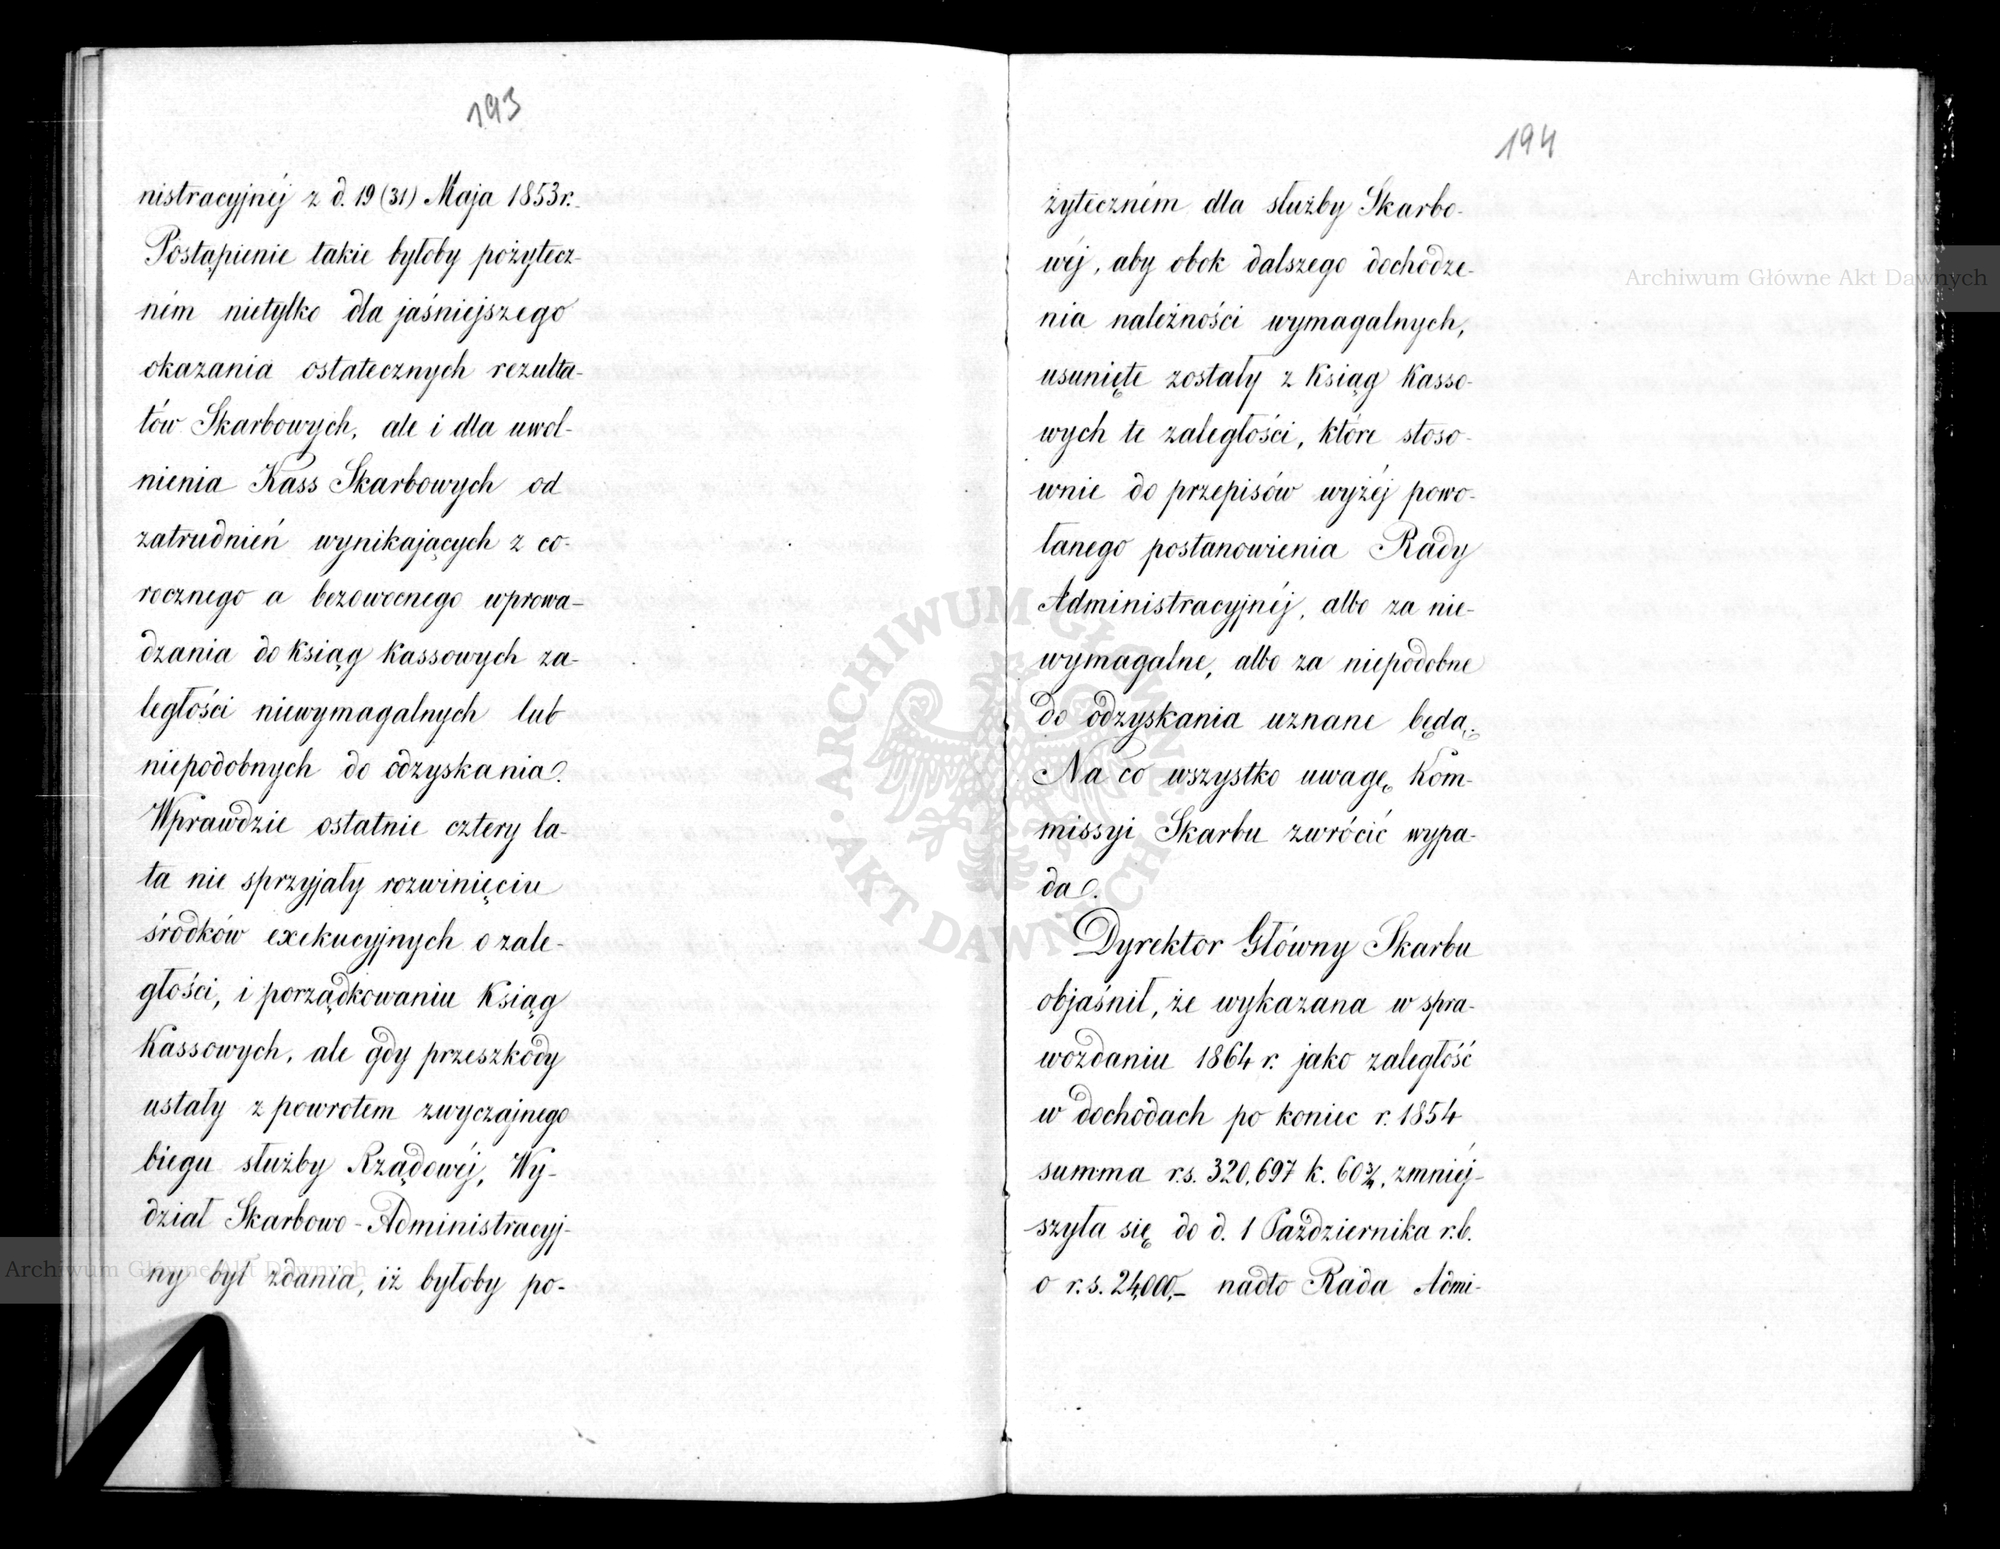 193
nistracyjnéj z d. 19 (31) Maja 1853 r.
Postąpienie takie byłoby pożytecz-
ném nietylko dla jaśniejszego
okazania ostatecznych rezulta-
tów Skarbowych, ale i dla uwol-
nienia Kass Skarbowych od
zatrudnień wynikających z co-
rocznego a bezowocnego wprowa-
dzania do Ksiąg Kassowych za-
ległości niewymagalnych lub
niepodobnych do odzyskania.
Wprawdzie ostatnie cztery la-
ta nie sprzyjały rozwinięciu
środków exekucyjnych o zale-
głości, i porządkowaniu Ksiąg
Kassowych, ale gdy przeszkody
ustały z powrotem zwyczajnego
biegu służby Rządowéj, Wy-
dział Skarbowo-Administracyj-
ny był zdania, iż byłoby po-
194
żyteczném dla służby Skarbo-
wéj, aby obok dalszego dochodze-
nia należności wymagalnych,
usunięte zostały z Ksiąg Kasso-
wych te zaległości, które stoso-
wnie do przepisów wyżéj powo-
łanego postanowienia Rady
Administracyjnéj, albo za nie-
wymagalne, albo za niepodobne
do odzyskania uznane będą.
Na co wszystko uwagę Kom-
missyi Skarbu zwrócić wypa-
da.
Dyrektor Główny Skarbu
objaśnił, że wykazana w spra-
wozdaniu 1864 r. jako zaległość
w dochodach po koniec r. 1854
summa r.s. 320,697 k. 60¾, zmniéj-
szyła się do d. 1 Października r.b.
o r.s. 24,000,– nadto Rada Admi-
Archiwum Główne Akt Dawnych
Archiwum Główne Akt Dawnych
ARCHIWUM GŁÓWNE AKT DAWNYCH